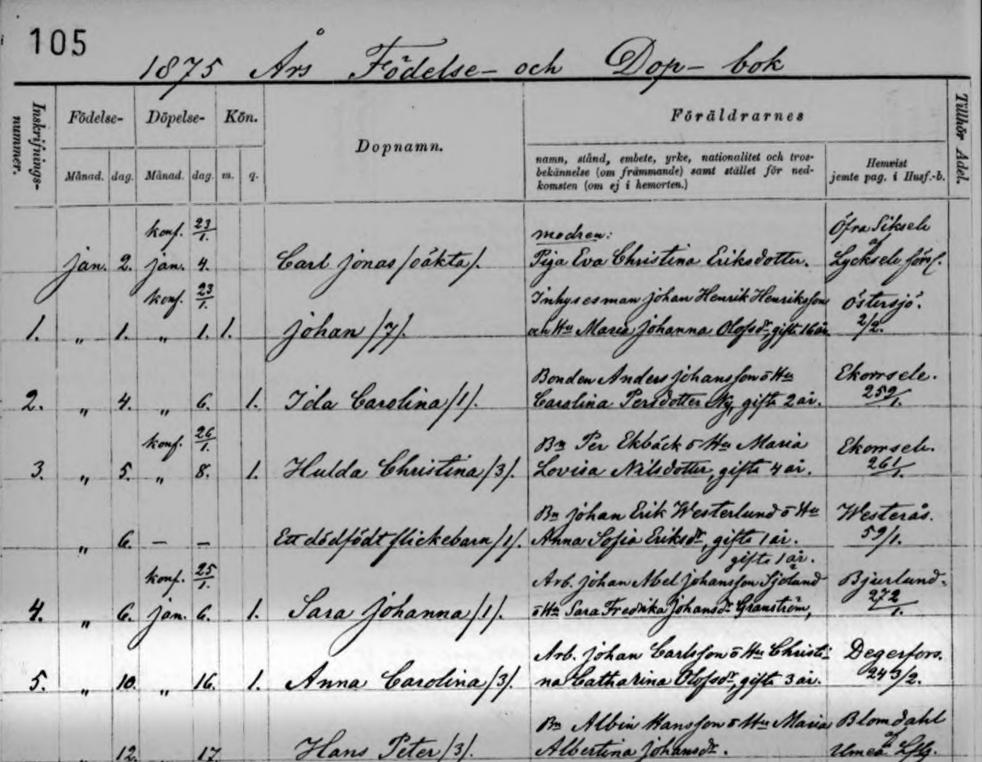 105
1875 Års Födelse- och Dop-bok
Inskrifnings-nummer.
Födelse-
Döpelse-
Kön.
Dopnamn.
Föräldrarnes
Tillhör Adel.
Månad. dag. Månad. dag. m. q.
namn, stånd, embete, yrke, nationalitet och tros-
bekännelse (om främmande) samt stället för ned-
komsten (om ej i hemorten.)
Hemvist
jemte pag. i Husf.-b.
konf. 23/1. modren: Öfra Siksele
jan. 2. jan. 4. Carl Jonas /oäkta/. Piga Eva Christina Eriksdotter. af Lycksele förs/.
konf. 23/1. Inhysesman Johan Henrik Henriksson Östersjö.
1. " 1. " 1. 1. Johan /7/. och Hu Maria Johanna Olofsdr, gifte 16 år. 2/2.
Bonden Anders Johansson o Hu Ekorrsele.
2. " 4. " 6. 1. Ida Carolina /1/. Carolina Persdotter Ny, gifte 2 år. 259/1.
konf. 26/1. Bn Per Ekbäck o Hu Maria Ekorrsele.
3. " 5. " 8. 1. Hulda Christina /3/. Lovisa Nilsdotter, gifte 4 år. 261/1.
Bn Johan Erik Westerlund o Hu Westerås.
" 6. — — Ett dödfödt flickebarn /1/. Anna Sofia Eriksdr, gifte 1 år. 59/1.
gifte 1 år.
konf. 25/1. Arb. Johan Abel Johansson Sjölund Bjurlund.
4. " 6. jan. 6. 1. Sara Johanna /1/. o Hu Sara Fredrika Johansdr Granström, 272/1.
Arb. Johan Carlsson o Hu Christi- Degerfors.
5. " 10. " 16. 1. Anna Carolina /3/. na Catharina Olofsdr, gifte 3 år. 243/2.
Bn Albin Hansson o Hu Maria Blomdahl
" 12. " 17. Hans Peter /3/. Albertina Johansdr. af Umeå Lfg.